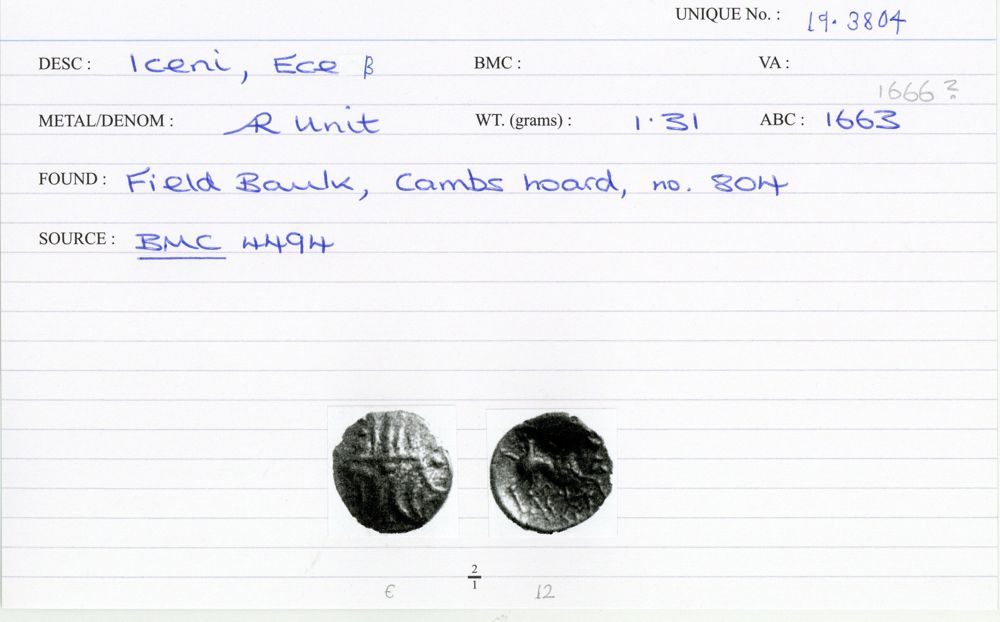 UNIQUE No. : 19.3804
DESC : Iceni, Ece β BMC : VA :
1666?
METAL/DENOM : AR Unit WT. (grams) : 1.31 ABC : 1663
FOUND : Field Baulk, Cambs hoard, no. 804
SOURCE : BMC 4494
2
1
E 12